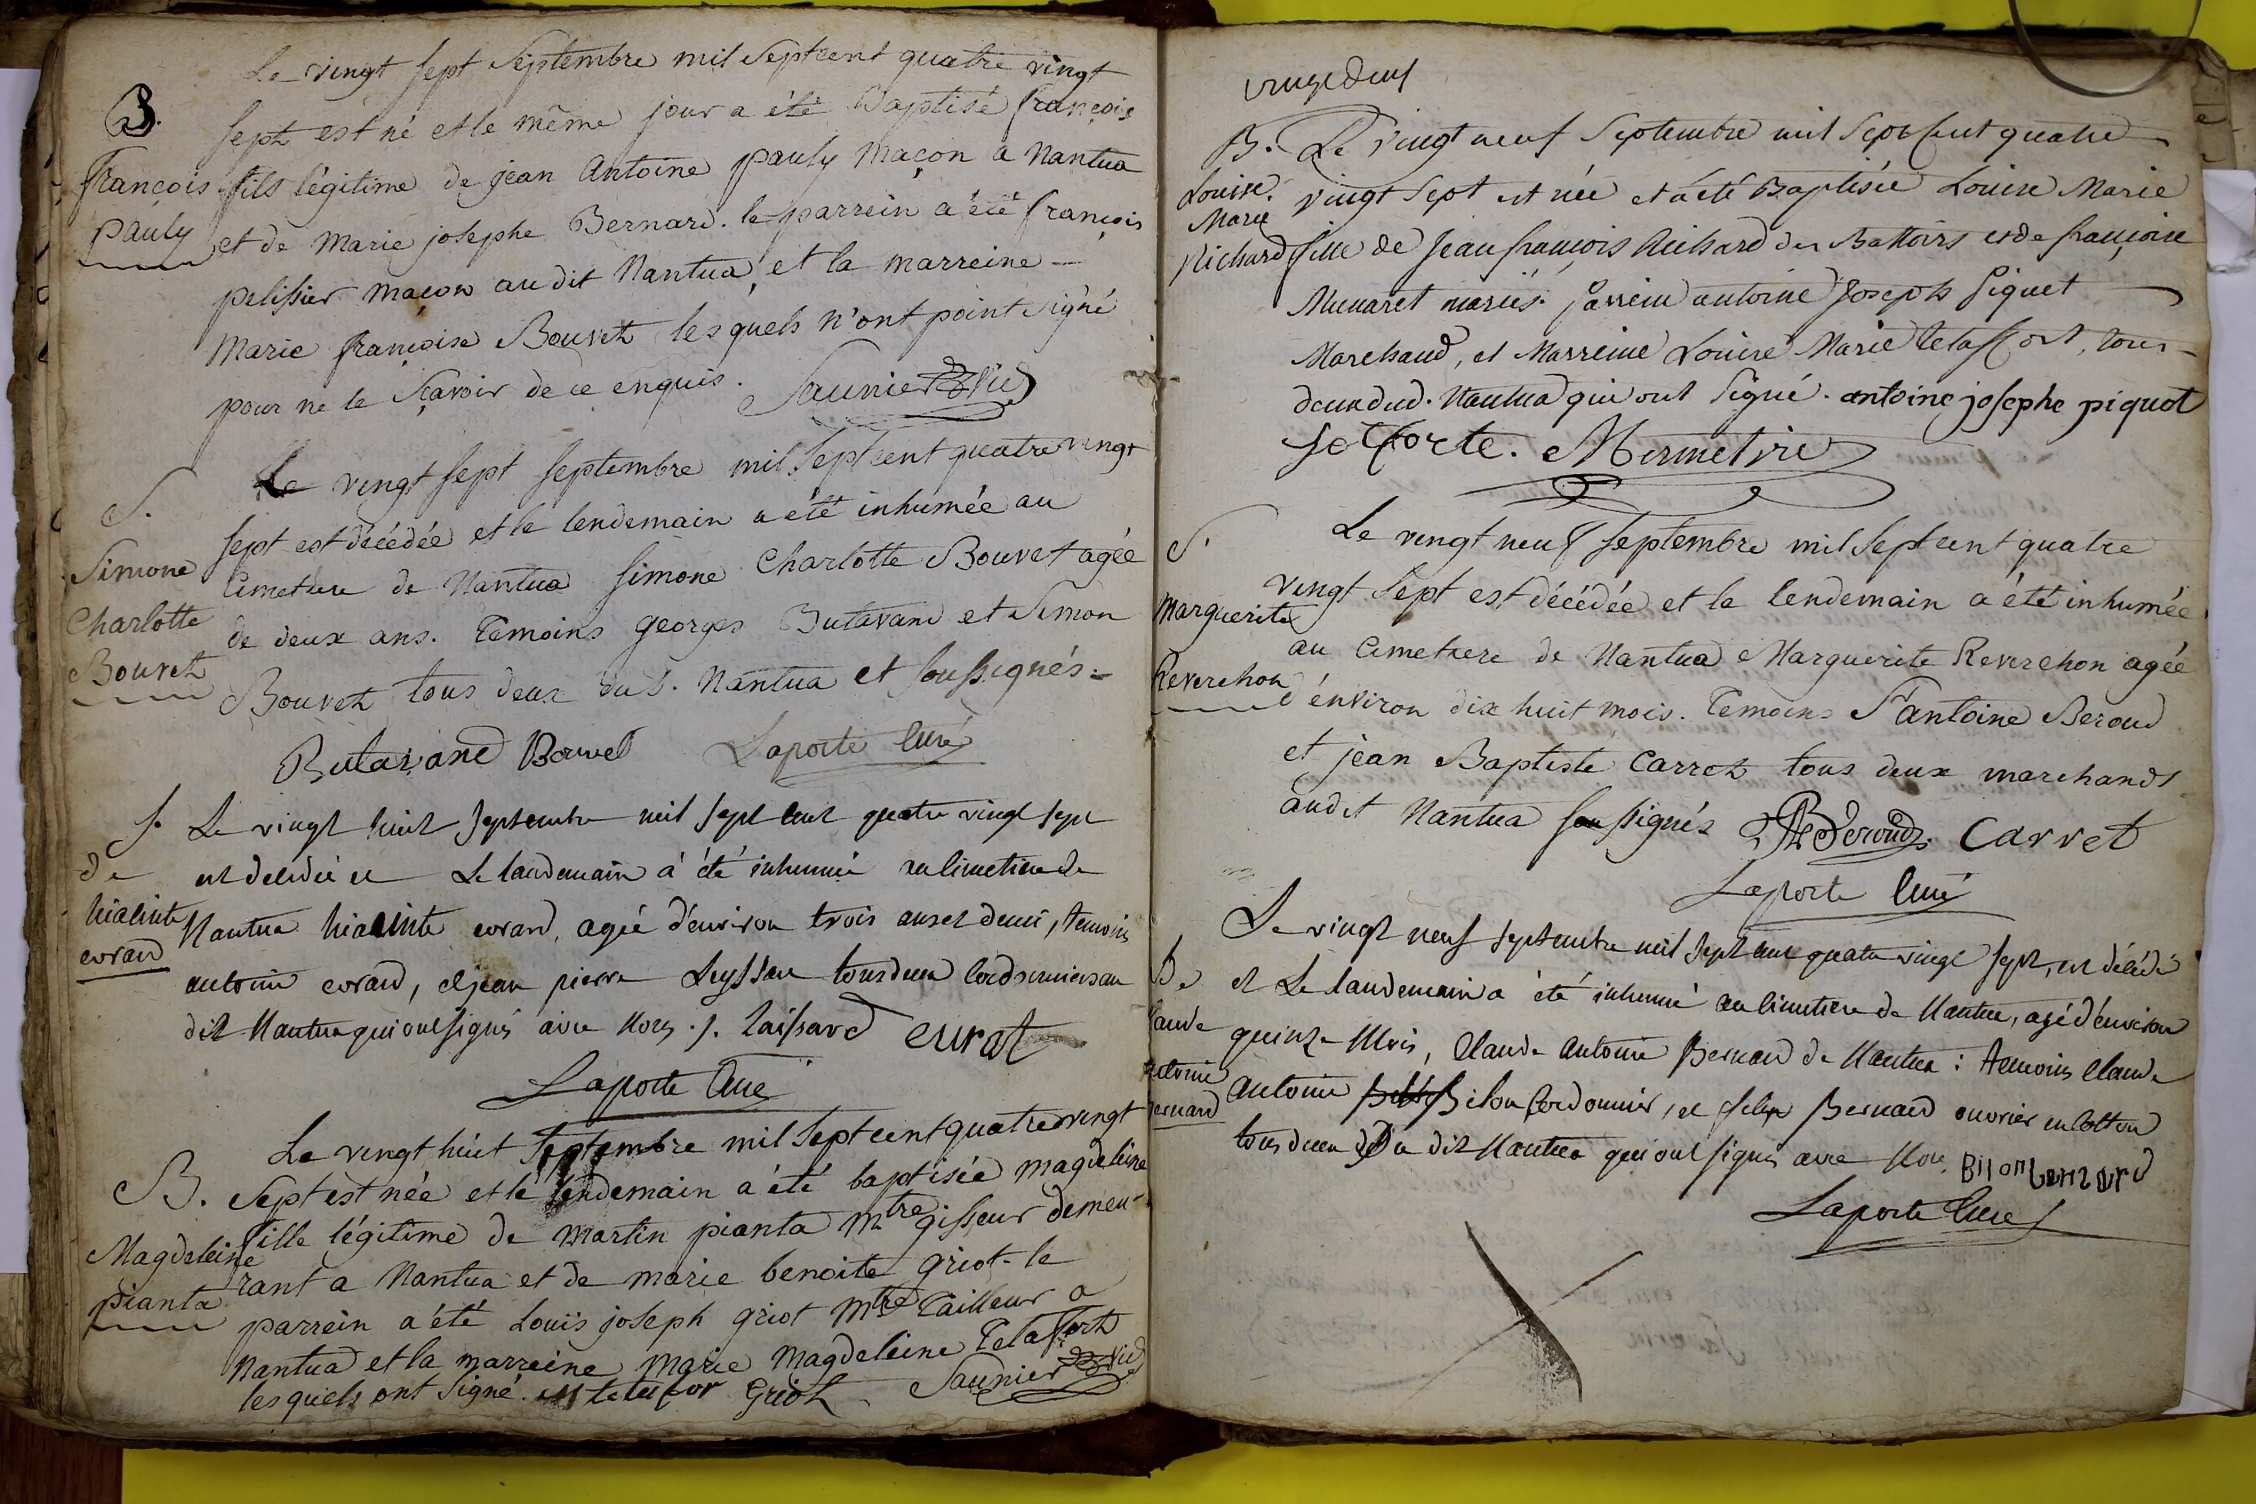 Le vingt sept Septembre mil Septcent quatre vingt
B.
sept est né et le même jour a été Baptisé françois
françois
fils légitime de jean Antoine pauly maçon a Nantua
pauly
et de Marie josephe Bernard. le parrein a été françois
pelissier maçon audit Nantua, et la marreine
Marie françoise Bouvet lesquels n'ont point signé
pour ne le sçavoir de ce enquis. Saunier Vic
Le vingt sept septembre mil septcent quatre vingt
S.
sept est décédée et le lendemain a été inhumée au
Simone
Cimetiere de Nantua simone Charlotte Bouvet agée
Charlotte
de deux ans. Temoins georges Butavand et Simon
Bouvet
Bouvet tous deux dud. Nantua et soussignés.
Butavand Bouvet Laporte Curé
S. Le vingt huit septembre mil sept cent quatre vingt sept
de
est décédée et Le landemain á été inhumée au Cimetiere de
hiacinte
Nantua hiacinte evrard, agée d'environ trois ans et demi, temoins
evrard
antoine evrard, et jean pierre Leyssard tous deux Cordonniers au
dit Nantua qui ont signés avec Nous. J. laissard evrat
Laporte Curé
Le vingt huit Septembre mil sept cent quatre vingt
B.
Sept est née et le lendemain a été baptisée magdeleine
fille légitime de martin pianta mtre gisseur demeu-
Magdeleine
rant a Nantua et de marie benoite griot. le
pianta
parrein a été Louis joseph griot mtre Tailleur a
Nantua et la marreine marie magdeleine Telaffort
lesquels ont signé. Griot Saunier Vic
B. Le vingt neuf Septembre mil Sept Cent quatre
Louise
vingt Sept est née et a été Baptisée Louise Marie
Marie
Richard
fille de Jean françois Richard des Battoirs et de françoise
Munaret mariés. Parrein antoine Joseph Piquet
Marchand, et Marreine Louise Marie Telaffort, tous
deux dud. Nantua qui ont signé. antoine josephe piquot
Mermet vic
Le vingt neuf septembre mil sept cent quatre
S.
vingt sept est décédée et le lendemain a été inhumée
Marguerite
au Cimetiere de Nantua Marguerite Reverchon agée
Reverchon
d'environ dix huit mois. Temoins Antoine Beroud
et jean Baptiste Carret tous deux marchands
audit Nantua soussignés Beroud Carret
Laporte Curé
Le vingt neuf septembre mil sept cent quatre vingt sept, est décédé
De
et Le landemain a été inhumé au Cimetiere de Nantua, agé d'environ
laude
quinze Mois, Claude Antoine Bernard de Nantua: temoins Claude
ntoine
Antoine Bilon Cordonnier, et felix Bernard ouvrier en Cotton
ernard
tous deux du dit Nantua qui ont signés avec Nous. Bilon Bernard
Laporte Curé